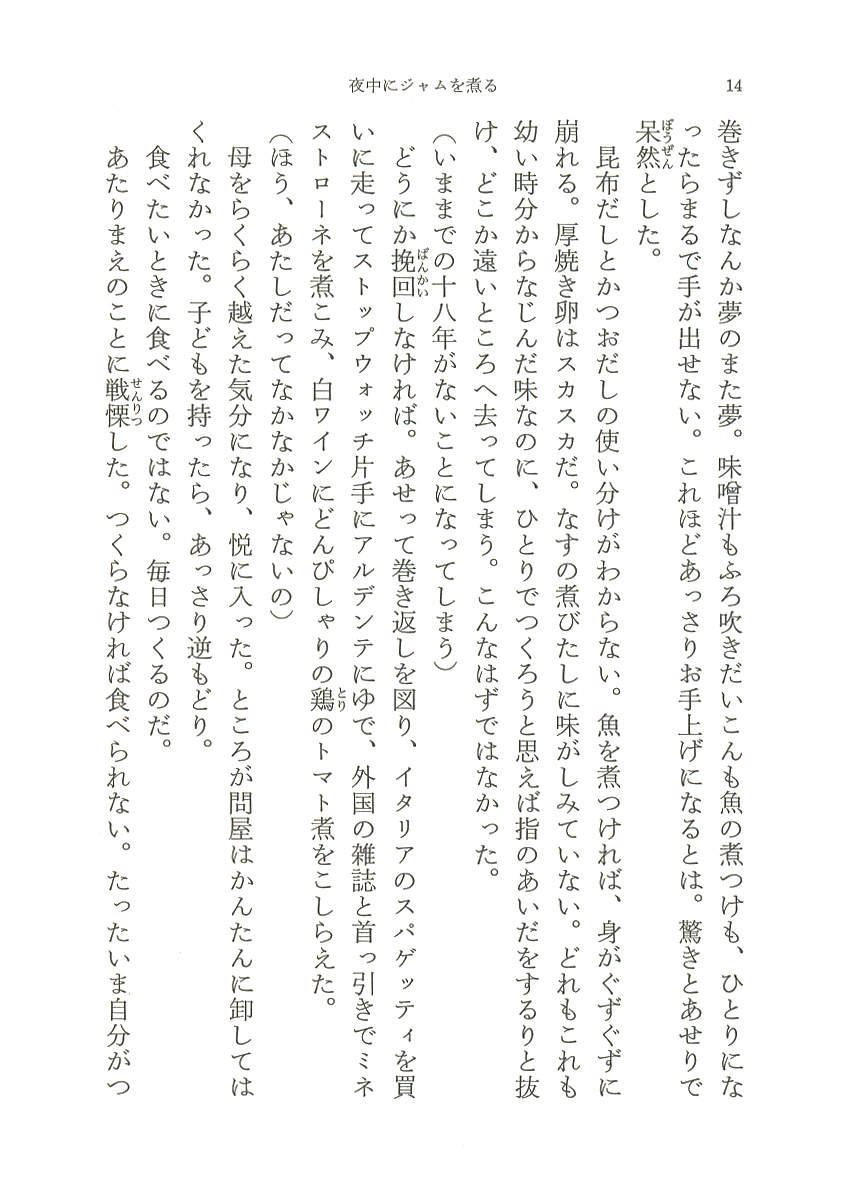 夜中にジャムを煮る
14
巻きずしなんか夢のまた夢。味噌汁もふろ吹きだいこんも魚の煮つけも、ひとりにな
ったらまるで手が出せない。これほどあっさりお手上げになるとは。驚きとあせりで
呆然とした。
昆布だしとかつおだしの使い分けがわからない。魚を煮つければ、身がぐずぐずに
崩れる。厚焼き卵はスカスカだ。なすの煮びたしに味がしみていない。どれもこれも
幼い時分からなじんだ味なのに、ひとりでつくろうと思えば指のあいだをするりと抜
け、どこか遠いところへ去ってしまう。こんなはずではなかった。
（いままでの十八年がないことになってしまう）
どうにか挽回しなければ。あせって巻き返しを図り、イタリアのスパゲッティを買
いに走ってストップウォッチ片手にアルデンテにゆで、外国の雑誌と首っ引きでミネ
ストローネを煮こみ、白ワインにどんぴしゃりの鶏のトマト煮をこしらえた。
（ほう、あたしだってなかなかじゃないの）
母をらくらく越えた気分になり、悦に入った。ところが問屋はかんたんに卸しては
くれなかった。子どもを持ったら、あっさり逆もどり。
食べたいときに食べるのではない。毎日つくるのだ。
あたりまえのことに戦慄した。つくらなければ食べられない。たったいま自分がつ